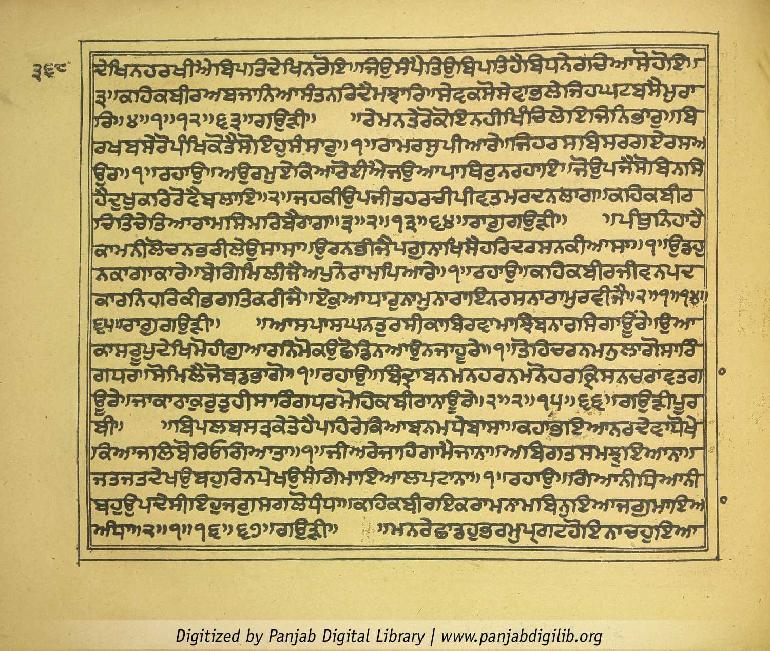 ੩੬੮
ਦੇਖਿਨਹਰਖੀਐਬਿਪਤਿਦੇਖਿਨਰੋਇ॥ਜਿਉਸੰਪੈਤਿਉਬਿਪਤਿਹੈਬਿਧਨੇਰਚਿਆਸੋਹੋਇ॥
੩॥ਕਹਿਕਬੀਰਅਬਜਾਨਿਆਸੰਤਨਰਿਦੈਮਝਾਰਿ॥ਸੇਵਕਸੋਸੇਵਾਭਲੇਜਿਹਘਟਬਸੈਮੁਰਾ
ਰਿ॥੪॥੧॥੧੨॥੬੩॥ਗਉੜੀ॥ ॥ਰੇਮਨਤੇਰੋਕੋਇਨਹੀਖਿੰਚਿਲੇਇਜਿਨਿਭਾਰੁ॥ਬਿ
ਰਖਬਸੇਰੋਪੰਖਿਕੋਤੈਸੋਇਹੁਸੰਸਾਰੁ॥੧॥ਰਾਮਰਸੁਪੀਆਰੇ॥ਜਿਹਰਸਬਿਸਰਗਏਰਸਅ
ਉਰ॥੧॥ਰਹਾਉ॥ਅਉਰਮੁਏਕਿਆਰੋਈਐਜਉਆਪਾਥਿਰੁਨਰਹਾਇ॥ਜੋਉਪਜੈਸੋਬਿਨਸਿ
ਹੈਦੁਖੁਕਰਿਰੋਵੈਬਲਾਇ॥੨॥ਜਹਕੀਉਪਜੀਤਹਰਚੀਪੀਵਤਮਰਦਨਲਾਗ॥ਕਹਿਕਬੀਰ
ਚਿਤਿਚੇਤਿਆਰਾਮਸਿਮਰਿਬੈਰਾਗ॥੩॥੨॥੧੩॥੬੪॥ਰਾਗੁਗਉੜੀ॥ ॥ਪੰਥੁਨਿਹਾਰੈ
ਕਾਮਨੀਲੋਚਨਭਰੀਲੇਉਸਾਸਾ॥ਉਰਨਭੀਜੈਪਗੁਨਾਖਿਸੈਹਰਿਦਰਸਨਕੀਆਸਾ॥੧॥ਉਡਹੁ
ਨਕਾਗਾਕਾਰੇ॥ਬੇਗਿਮਿਲੀਜੈਅਪੁਨੇਰਾਮਪਿਆਰੇ॥੧॥ਰਹਾਉ॥ਕਹਿਕਬੀਰਜੀਵਨਪਦ
ਕਾਰਨਿਹਰਿਕੀਭਗਤਿਕਰੀਜੈ॥ਏਕੁਆਧਾਰੁਨਾਮੁਨਾਰਾਇਨਰਸਨਾਰਾਮੁਰਵੀਜੈ॥੨॥੧॥੧੪॥
੬੫॥ਰਾਗੁਗਉੜੀ॥ ॥ਆਸਪਾਸਘਨਤੁਰਸੀਕਾਬਿਰਵਾਮਾਝਿਬਨਾਰਸਿਗਾਊਂਰੇ॥ਉਆ
ਕਾਸਰੂਪੁਦੇਖਿਮੋਹੀਗੁਆਰਨਿਮੋਕਉਛੋਡਿਨਆਉਨਜਾਹੂਰੇ॥੧॥ਤੋਹਿਚਰਨਮਨੁਲਾਗੋਸਾਰਿੰ
ਗਧਰ॥ਸੋਮਿਲੈਜੋਬਡਭਾਗੋ॥੧॥ਰਹਾਉ॥ਬਿੰਦ੍ਰਾਬਨਮਨਹਰਨਮਨੋਹਰਕ੍ਰਿਸਨਚਰਾਵਤਗਾ
ਊਰੇ॥ਜਾਕਾਠਾਕੁਰੁਤੁਹੀਸਾਰਿੰਗਧਰਮੋਹਿਕਬੀਰਾਨਾਊਰੇ॥੨॥੨॥੧੫॥੬੬॥ਗਉੜੀਪੂਰ
ਬੀ॥ ॥ਬਿਪਲਬਸਤ੍ਰਕੇਤੇਹੈਪਹਿਰੇਕਿਆਬਨਮਧੇਬਾਸਾ॥ਕਹਾਭਇਆਨਰਦੇਵਾਧੋਖੇ
ਕਿਆਜਲਿਬੋਰਿਓਗਿਆਤਾ॥੧॥ਜੀਅਰੇਜਾਹਿਗਾਮੈਜਾਨਾ॥ਅਬਿਗਤਸਮਝੁਇਆਨਾ॥
ਜਤਜਤਦੇਖਉਬਹੁਰਿਨਪੇਖਉਸੰਗਿਮਾਇਆਲਪਟਾਨਾ॥੧॥ਰਹਾਉ॥ਗਿਆਨੀਧਿਆਨੀ
ਬਹੁਉਪਦੇਸੀਇਹੁਜਗੁਸਗਲੋਧੰਧਾ॥ਕਹਿਕਬੀਰਇਕਰਾਮਨਾਮਬਿਨੁਇਆਜਗੁਮਾਇਆ
ਅੰਧਾ॥੨॥੧॥੧੬॥੬੭॥ਗਉੜੀ॥ ॥ਮਨਰੇਛਾਡਹੁਭਰਮੁਪ੍ਰਗਟਹੋਇਨਾਚਹੁਇਆ
Digitized by Panjab Digital Library | www.panjabdigilib.org